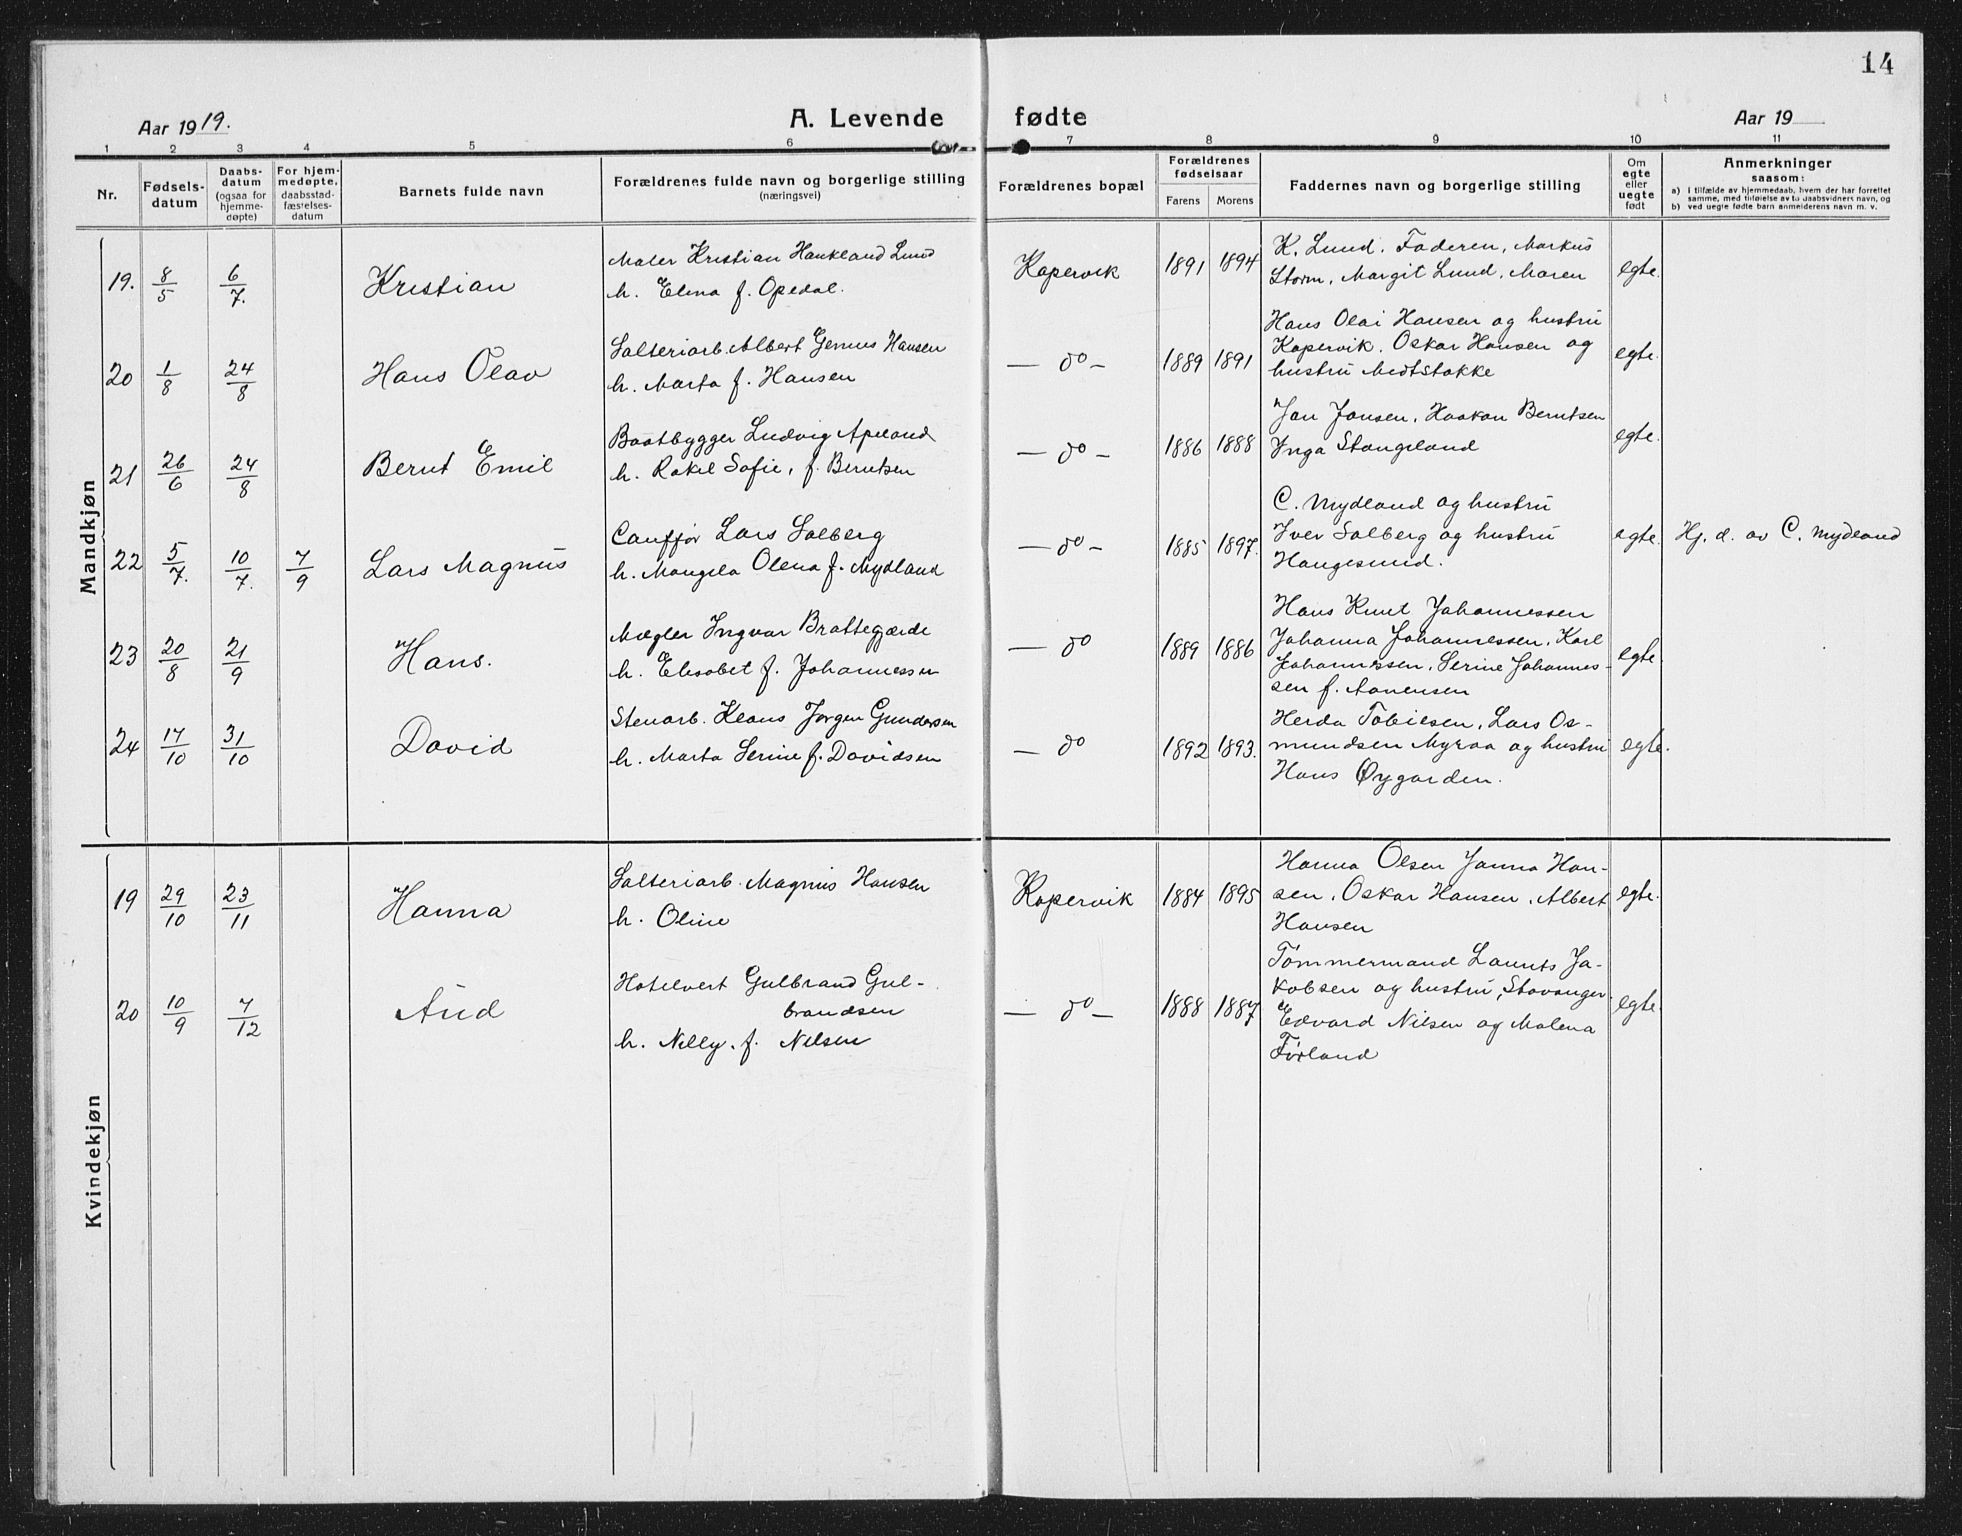 14
Aar 1919. A. Levende fødte Aar 19
1 2 3 4 5 6 7 8 9 10 11
Nr. Fødselsdatum Daabsdatum (ogsaa for hjemmedøpte) For hjemmedøpte, daabsstadfæstelsesdatum Barnets fulde navn Forældrenes fulde navn og borgerlige stilling (næringsvei) Forældrenes bopæl Forældrenes fødselsaar Farens Morens Faddernes navn og borgerlige stilling Om egte eller uegte født Anmerkninger saasom:
a) i tilfælde av hjemmedaab, hvem der har forrettet samme, med tilføielse av to daabsvidners navn, og
b) ved uegte fødte barn anmelderens navn m. v.
Mandkjøn
19. 8/5 6/7. Kristian Maler Kristian Haukland Lund Kopervik 1891 1894 K. Lund. Faderen, Markus egte.
h. Elena f. Opedal. Storm, Margit Lund, Maren
20 1/8 24/8 Hans Olav Salteriarb. Albert Hansen — do — 1889 1891 Hans Olai Hansen og hustru egte.
h. Marta f. Hansen Kopervik. Oskar Hansen og
hustru Medtstokke
21 26/6 24/8 Bernt Emil Baatbygger Ludvig Apeland — do — 1886 1888 Jan Jansen, Haakon Berntsen egte.
h. Rakel Sofie, f. Berntsen Inga Stangeland
22 5/7. 10/7. 7/9 Lars Magnus Lars Solberg — do — 1885 1897. C. Mydland og hustru egte. Hj. d. av C. Mydland
h. Mangela Olena f. Mydland Iver Solberg og hustru
Haugesund.
23 20/8 21/9 Hans. Mægler Ingvar Brattegjerde — do 1889 1886 Hans Knut Johannessen egte.
h. Elisabet f. Johannessen Johanna Johannessen, Karl
Johannessen, Serine Johannes-
sen f. Aanensen
24 17/10 31/10 David Stenarb. Klaus Jørgen Gundersen — do 1892 1893. Herda Tobiesen, Lars Os- egte.
h. Marta Serine f. Davidsen mundsen Myraa og hustru
Hans Øygarden.
Kvindekjøn
19 29/10 23/11 Hanna Salteriarb. Magnus Hansen Kopervik 1884 1895 Hanna Olsen Janna Han- egte.
h. Oline sen, Oskar Hansen, Albert
Hansen
20 10/9 7/12 Aud Hotelvert Gulbrand Gul- — do — 1888 1887 Tømmermand Laurits Ja- egte.
brandsen kobsen og hustru, Stavanger.
h. Nelly. f. Nilsen Edvard Nilsen og Malena
Førland